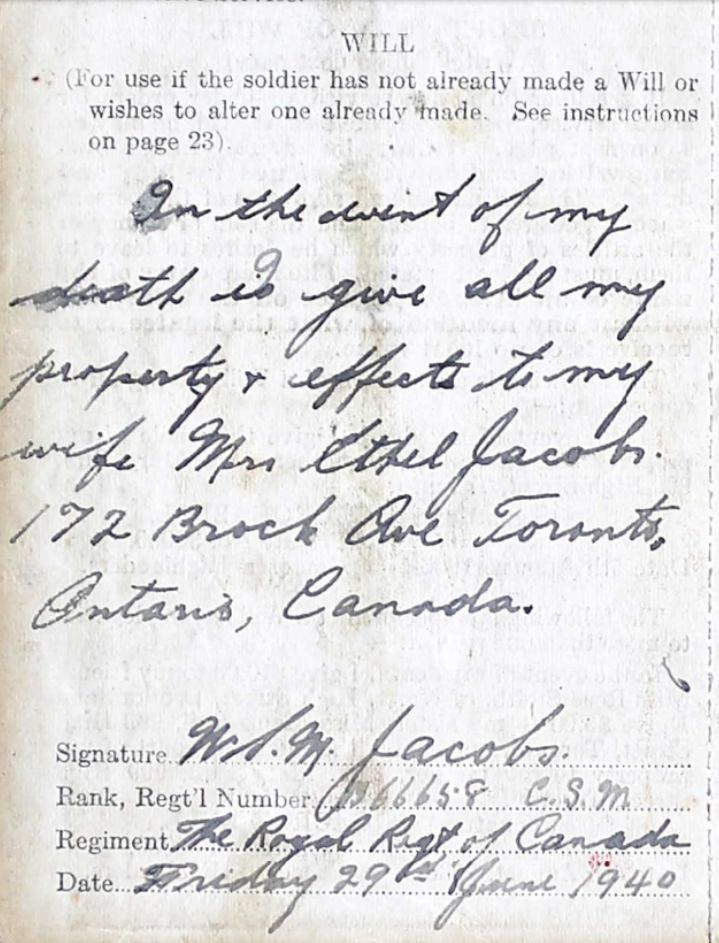 WILL
(For use if the soldier has not already made a Will or
wishes to alter one already made. See instructions
on page 23).
In the event of my
death is give all my
property & effects to my
wife Mrs Ethel Jacobs.
172 Brock Ave Toronto,
Ontario, Canada.
Signature W.S.M. Jacobs.
Rank, Regt'l Number B66658 C.S.M
Regiment The Royal Regt of Canada
Date Friday 29th June 1940